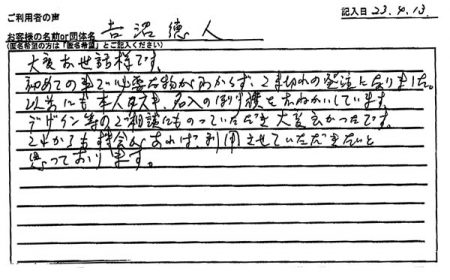 ご利用者の声
記入日 23.9.13
お客様の名前or団体名 吉沼徳人
(匿名希望の方は「匿名希望」とご記入ください)
大変お世話様です。
初めての事で必要な物がわからず、こま切れの発注になりました。
以前にも本人タスキ、名入のぼり旗をおねがいしています。
デザイン等のご相談にものっていただき大変良かったです。
これからも機会があれば、利用させていただきたいと
思っております。